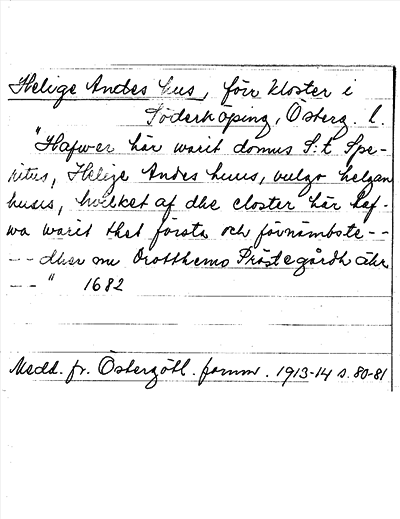 Helige Andes hus, förr kloster i
Söderköping, Österg. l.
"Hafwer här warit domus S:t Spe-
ritus, Helige Andes huus, vulgo helgan
husis, hvilket af dhe closter här haf-
wa warit thet första och förnämbste --
-- dher nu Drotthems Prästegårdh ähr
-- " 1682
Medd. fr. Östergötl. fornm. 1913-14 s. 80-81